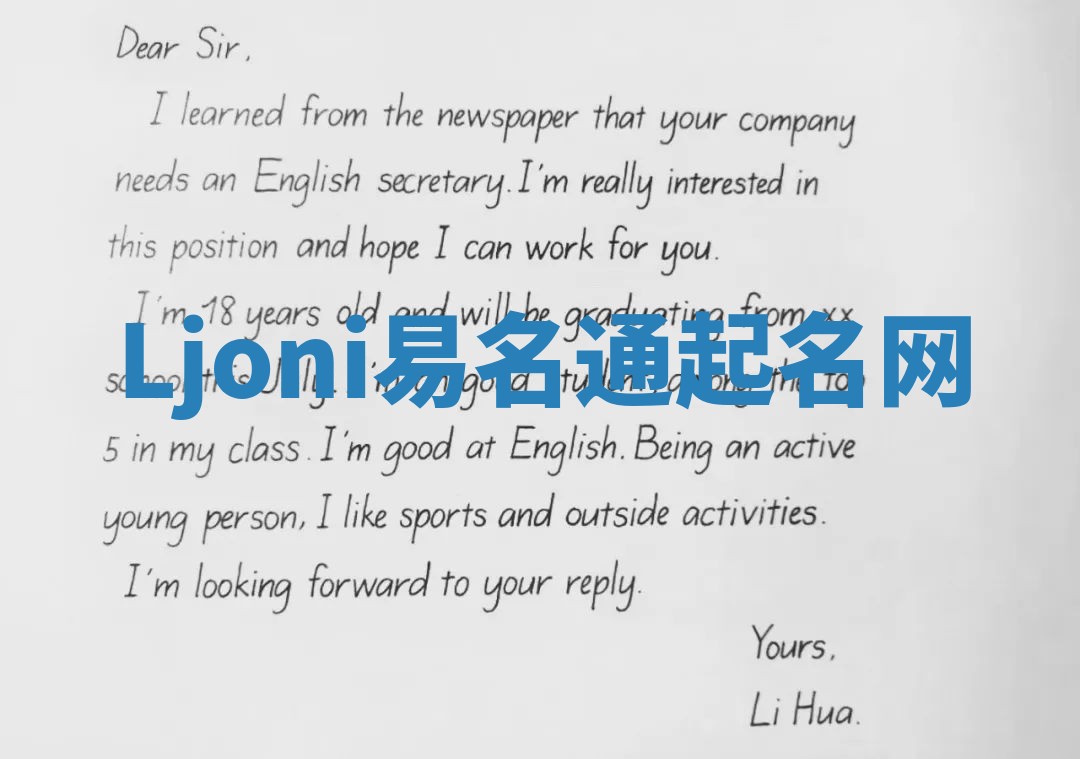 Dear Sir,
I learned from the newspaper that your company
needs an English secretary. I'm really interested in
this position and hope I can work for you.
I'm 18 years old and will be graduating from xx
Ljoni易名通起名网
school this July. I'm a good student, among the top
5 in my class. I'm good at English. Being an active
young person, I like sports and outside activities.
I'm looking forward to your reply.
Yours,
Li Hua.